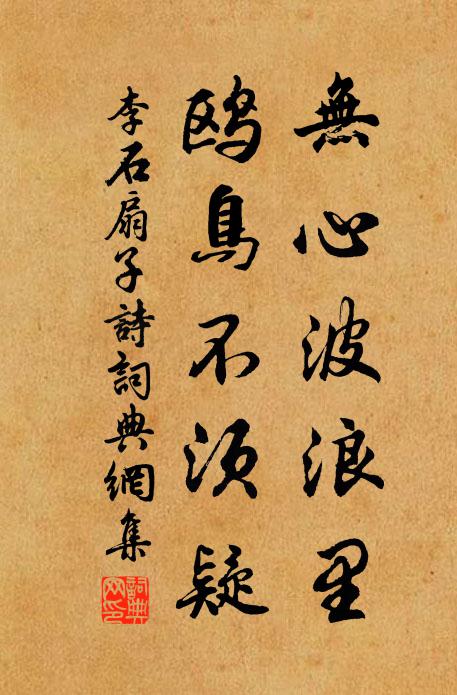 無心波浪里
鸥鳥不須疑
李石扇子詩詞典網集
詞典网印